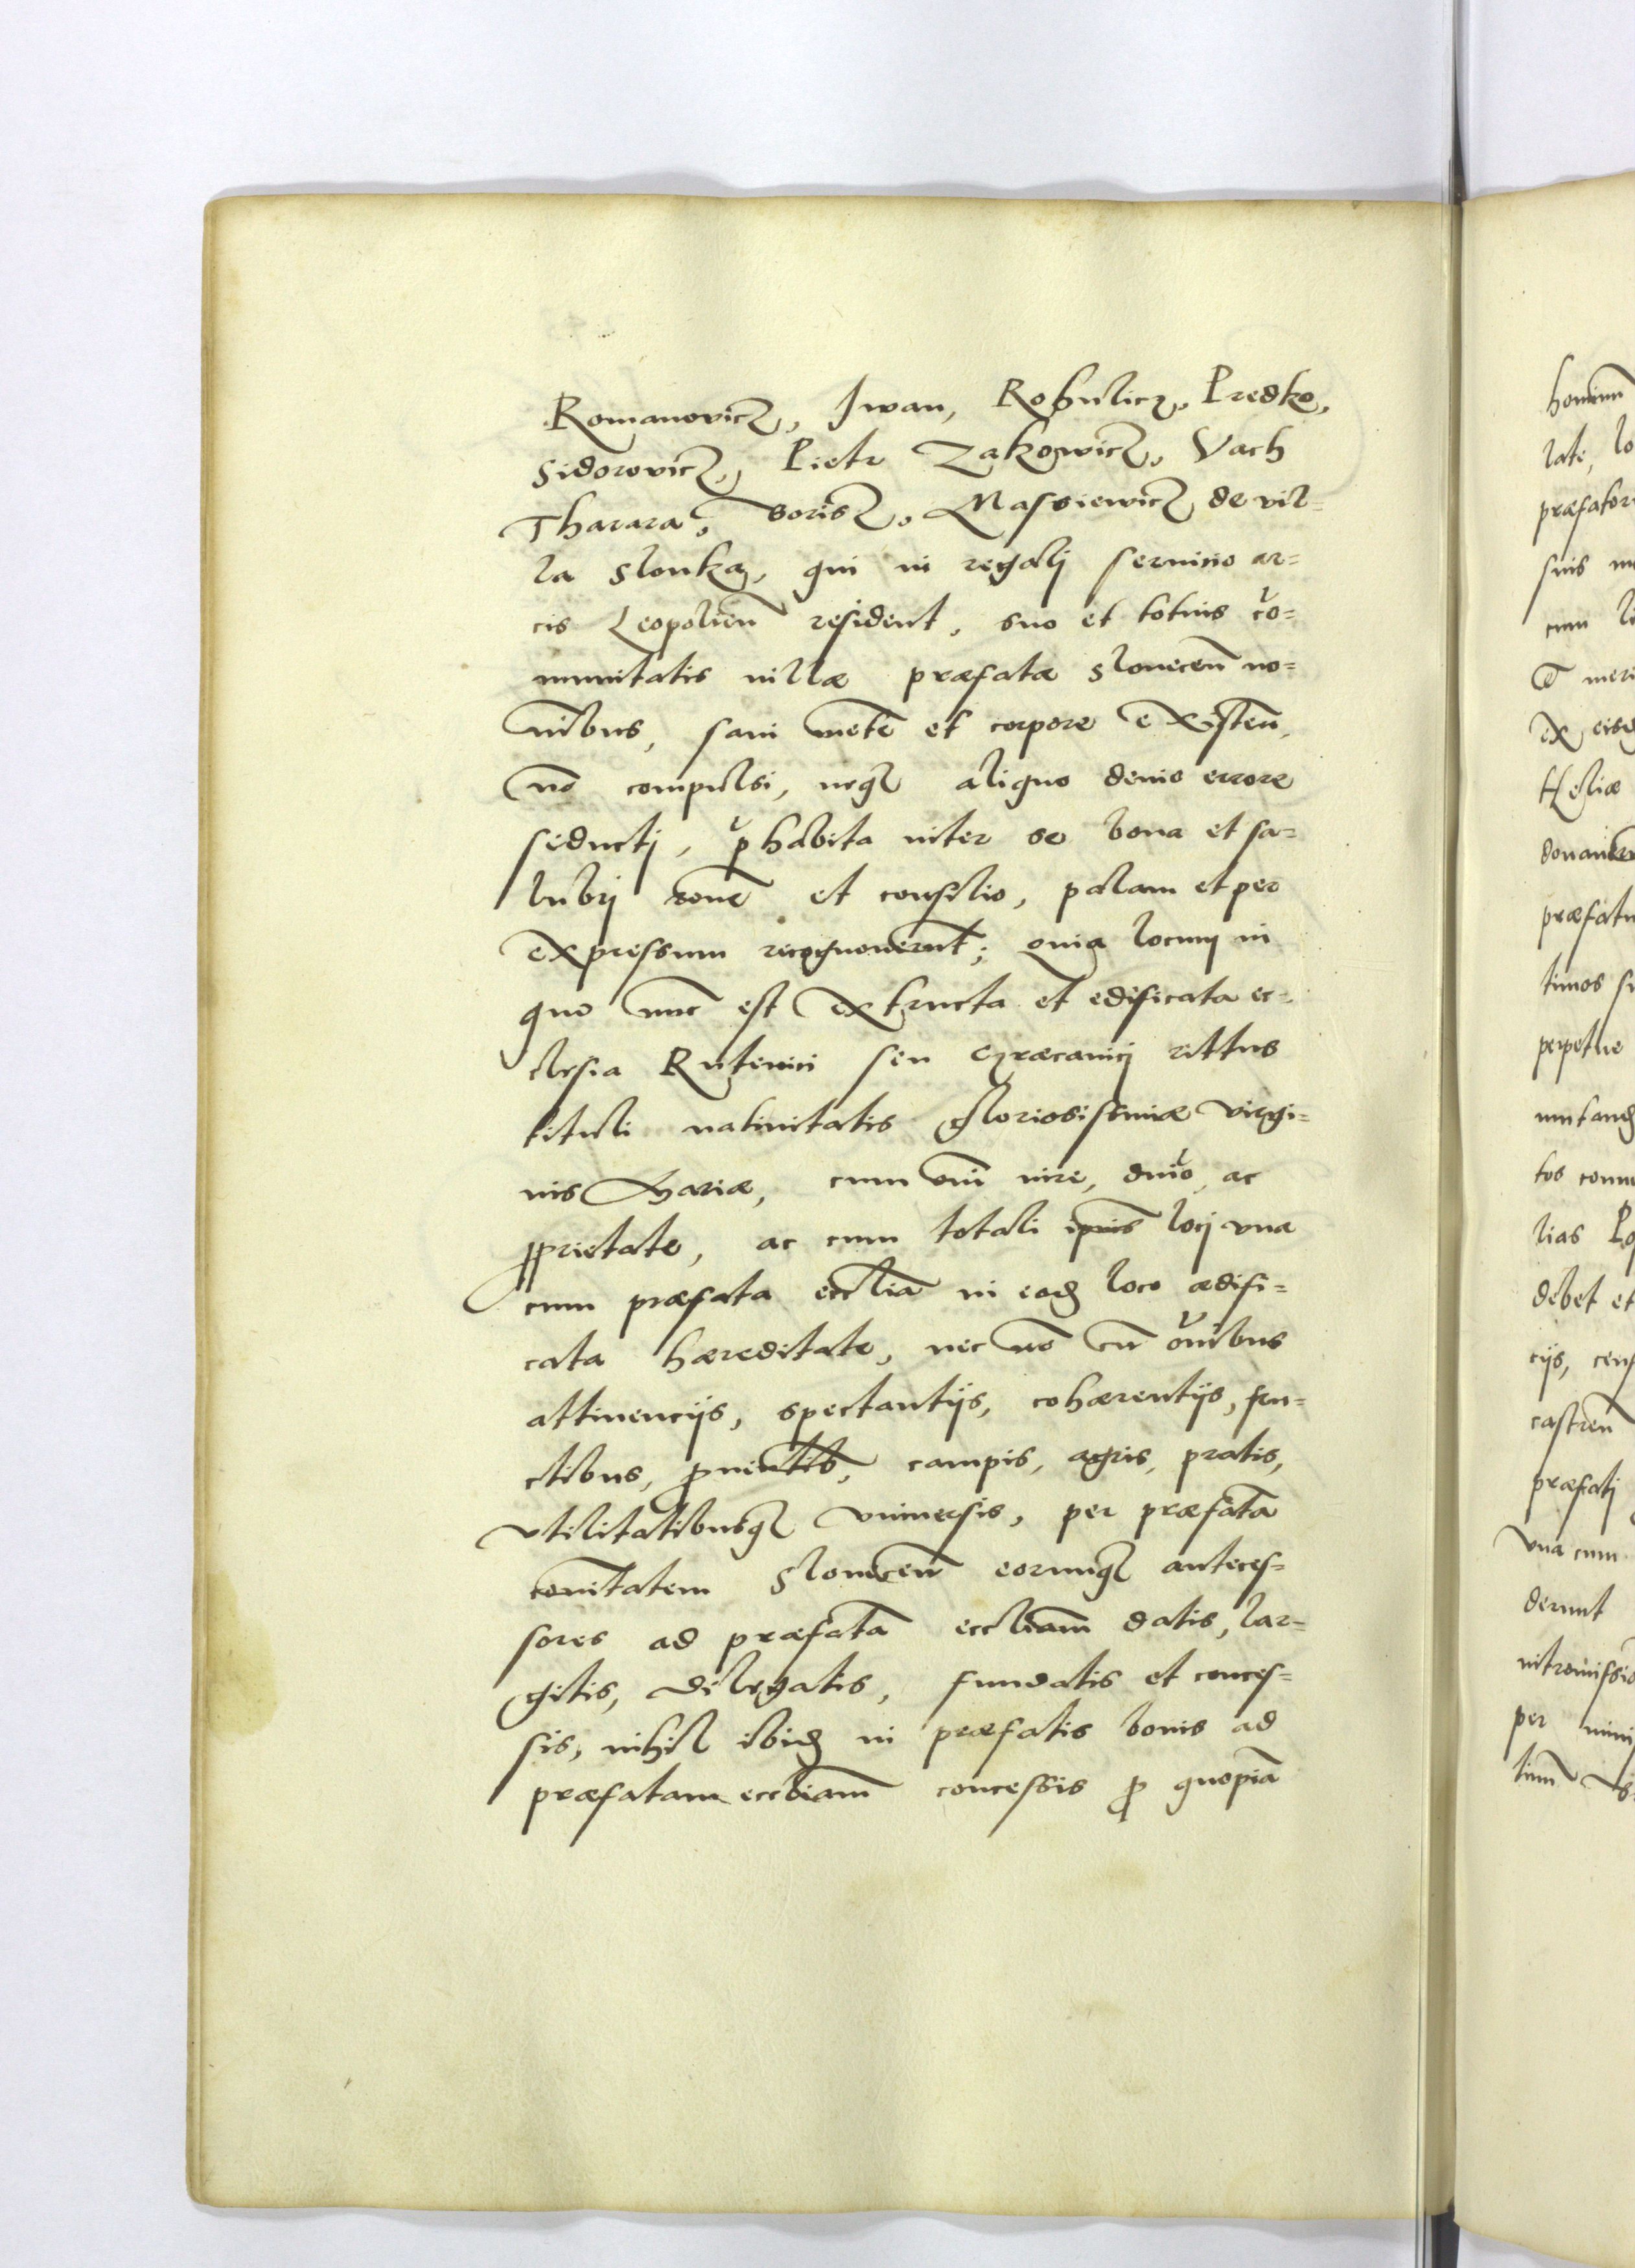 Romanovicz, Iwan, Robulicz, Predko,
Sidorovicz, Pietr Zakowicz, Vach
Tharara, Borisz, Massiewicz de vil=
la Slonka, qui in regalj seruicio ar=
cis Leopolien̄ resident, suo et totius cŏ=
munitatis uillæ præfatæ Slonecen̄ no=
nībus, sani mēte et corpore existen̄,
nō compulsi, neqꝫ aliquo deuio errore
seductj, p̆habita inter se bona et sa=
lubrj rōne et consilio, palam et per
expressum recognouerūt; quia locum in
quo nūc est extructa et edificata ec=
clesia Rutenici seu Græcanicj rittus
tituli natiuitatis gloriosissimæ virgi=
nis Mariæ, cum om̄i iure, dn̄io, ac
ꝓprietate, ac cum totali ip̄ius locj vna
cum præfata eccl̄ia in eodꝫ loco ædifi=
cata hæreditate, nec nō cū om̄ibus
attinencijs, spectantijs, cohærentijs, fru=
ctibus, ꝓuentib, campis, agris, pratis,
vtilitatibusqꝫ vniuersis, per præfatā
com̄itatem Slonecen̄ eorumqꝫ anteces=
sores ad præfatā eccl̄iam datis, lar=
gitis, delegatis, fundatis et conces=
sis, nihil ibidꝫ in præfatis bonis ad
præfatam eccl̄iam concessis ꝓ quopiā
homīnū
late, lo
præfator
suis
cum li
ex eisd
Heliæ
donauer
præfatu
timos su
perpetue
mutandꝫ
tos comu
lias Po
debet et
cijs, cens
castren̄
præfatj
vna cum
derunt
intromissio
per